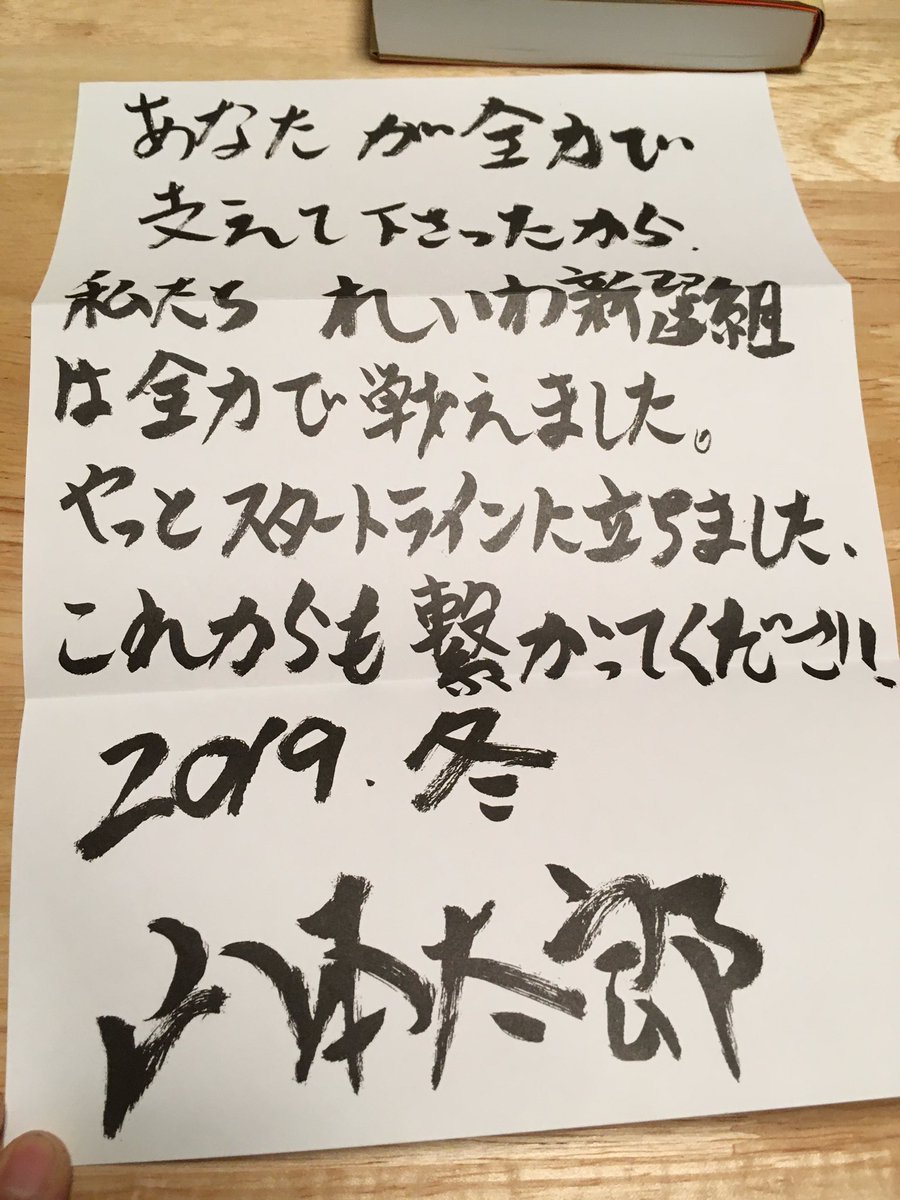 あなたが全力で
支えて下さったから、
私たち れいわ新選組
は全力で戦えました。
やっとスタートラインに立ちました、
これからも繋がってください!
2019.冬
山本太郎